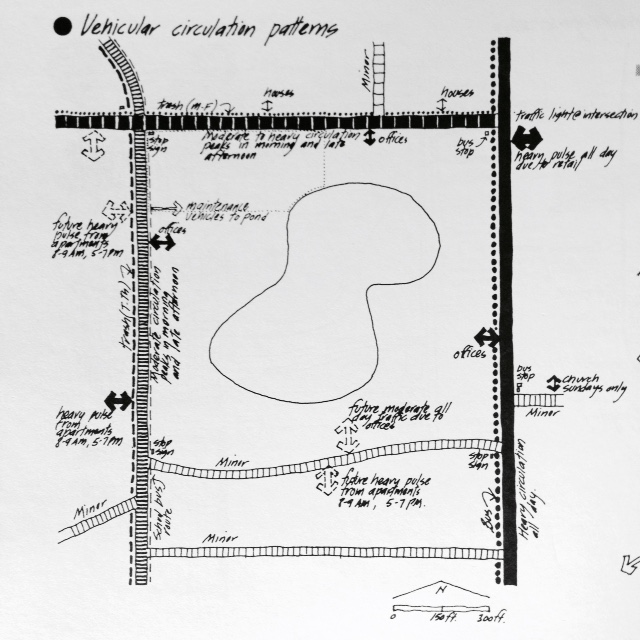 Vehicular circulation patterns
Minor
houses
houses
trash (M-F)
traffic light@intersection
stop
sign
Moderate to heavy circulation
peaks in morning and late
afternoon
offices
bus
stop
heavy pulse all day
due to retail
maintenance
vehicles to pond
future heavy
pulse from
apartments
8-9 AM, 5-7 PM
offices
trash (T.TH)
Moderate circulation
peaks in morning
and late afternoon
offices
bus
stop
church
sundays only
Minor
heavy pulse
from
apartments
8-9 AM, 5-7 PM
future moderate all
day traffic due to
offices
stop
sign
Minor
stop
sign
future heavy pulse
from apartments
8-9 AM, 5-7 PM.
Minor
School bus
route
Bus
Heavy circulation
all day.
Minor
N
0 150ft. 300ft.